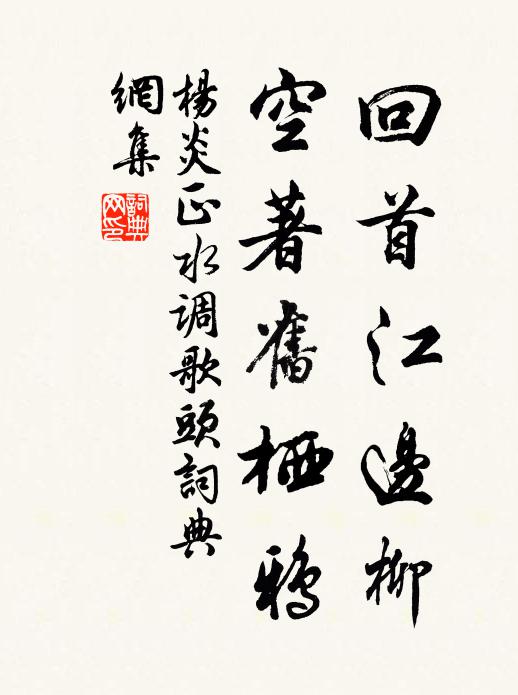 回首江邊柳
空著舊栖鴉
楊炎正水调歌頭詞典
網集
詞典
网印